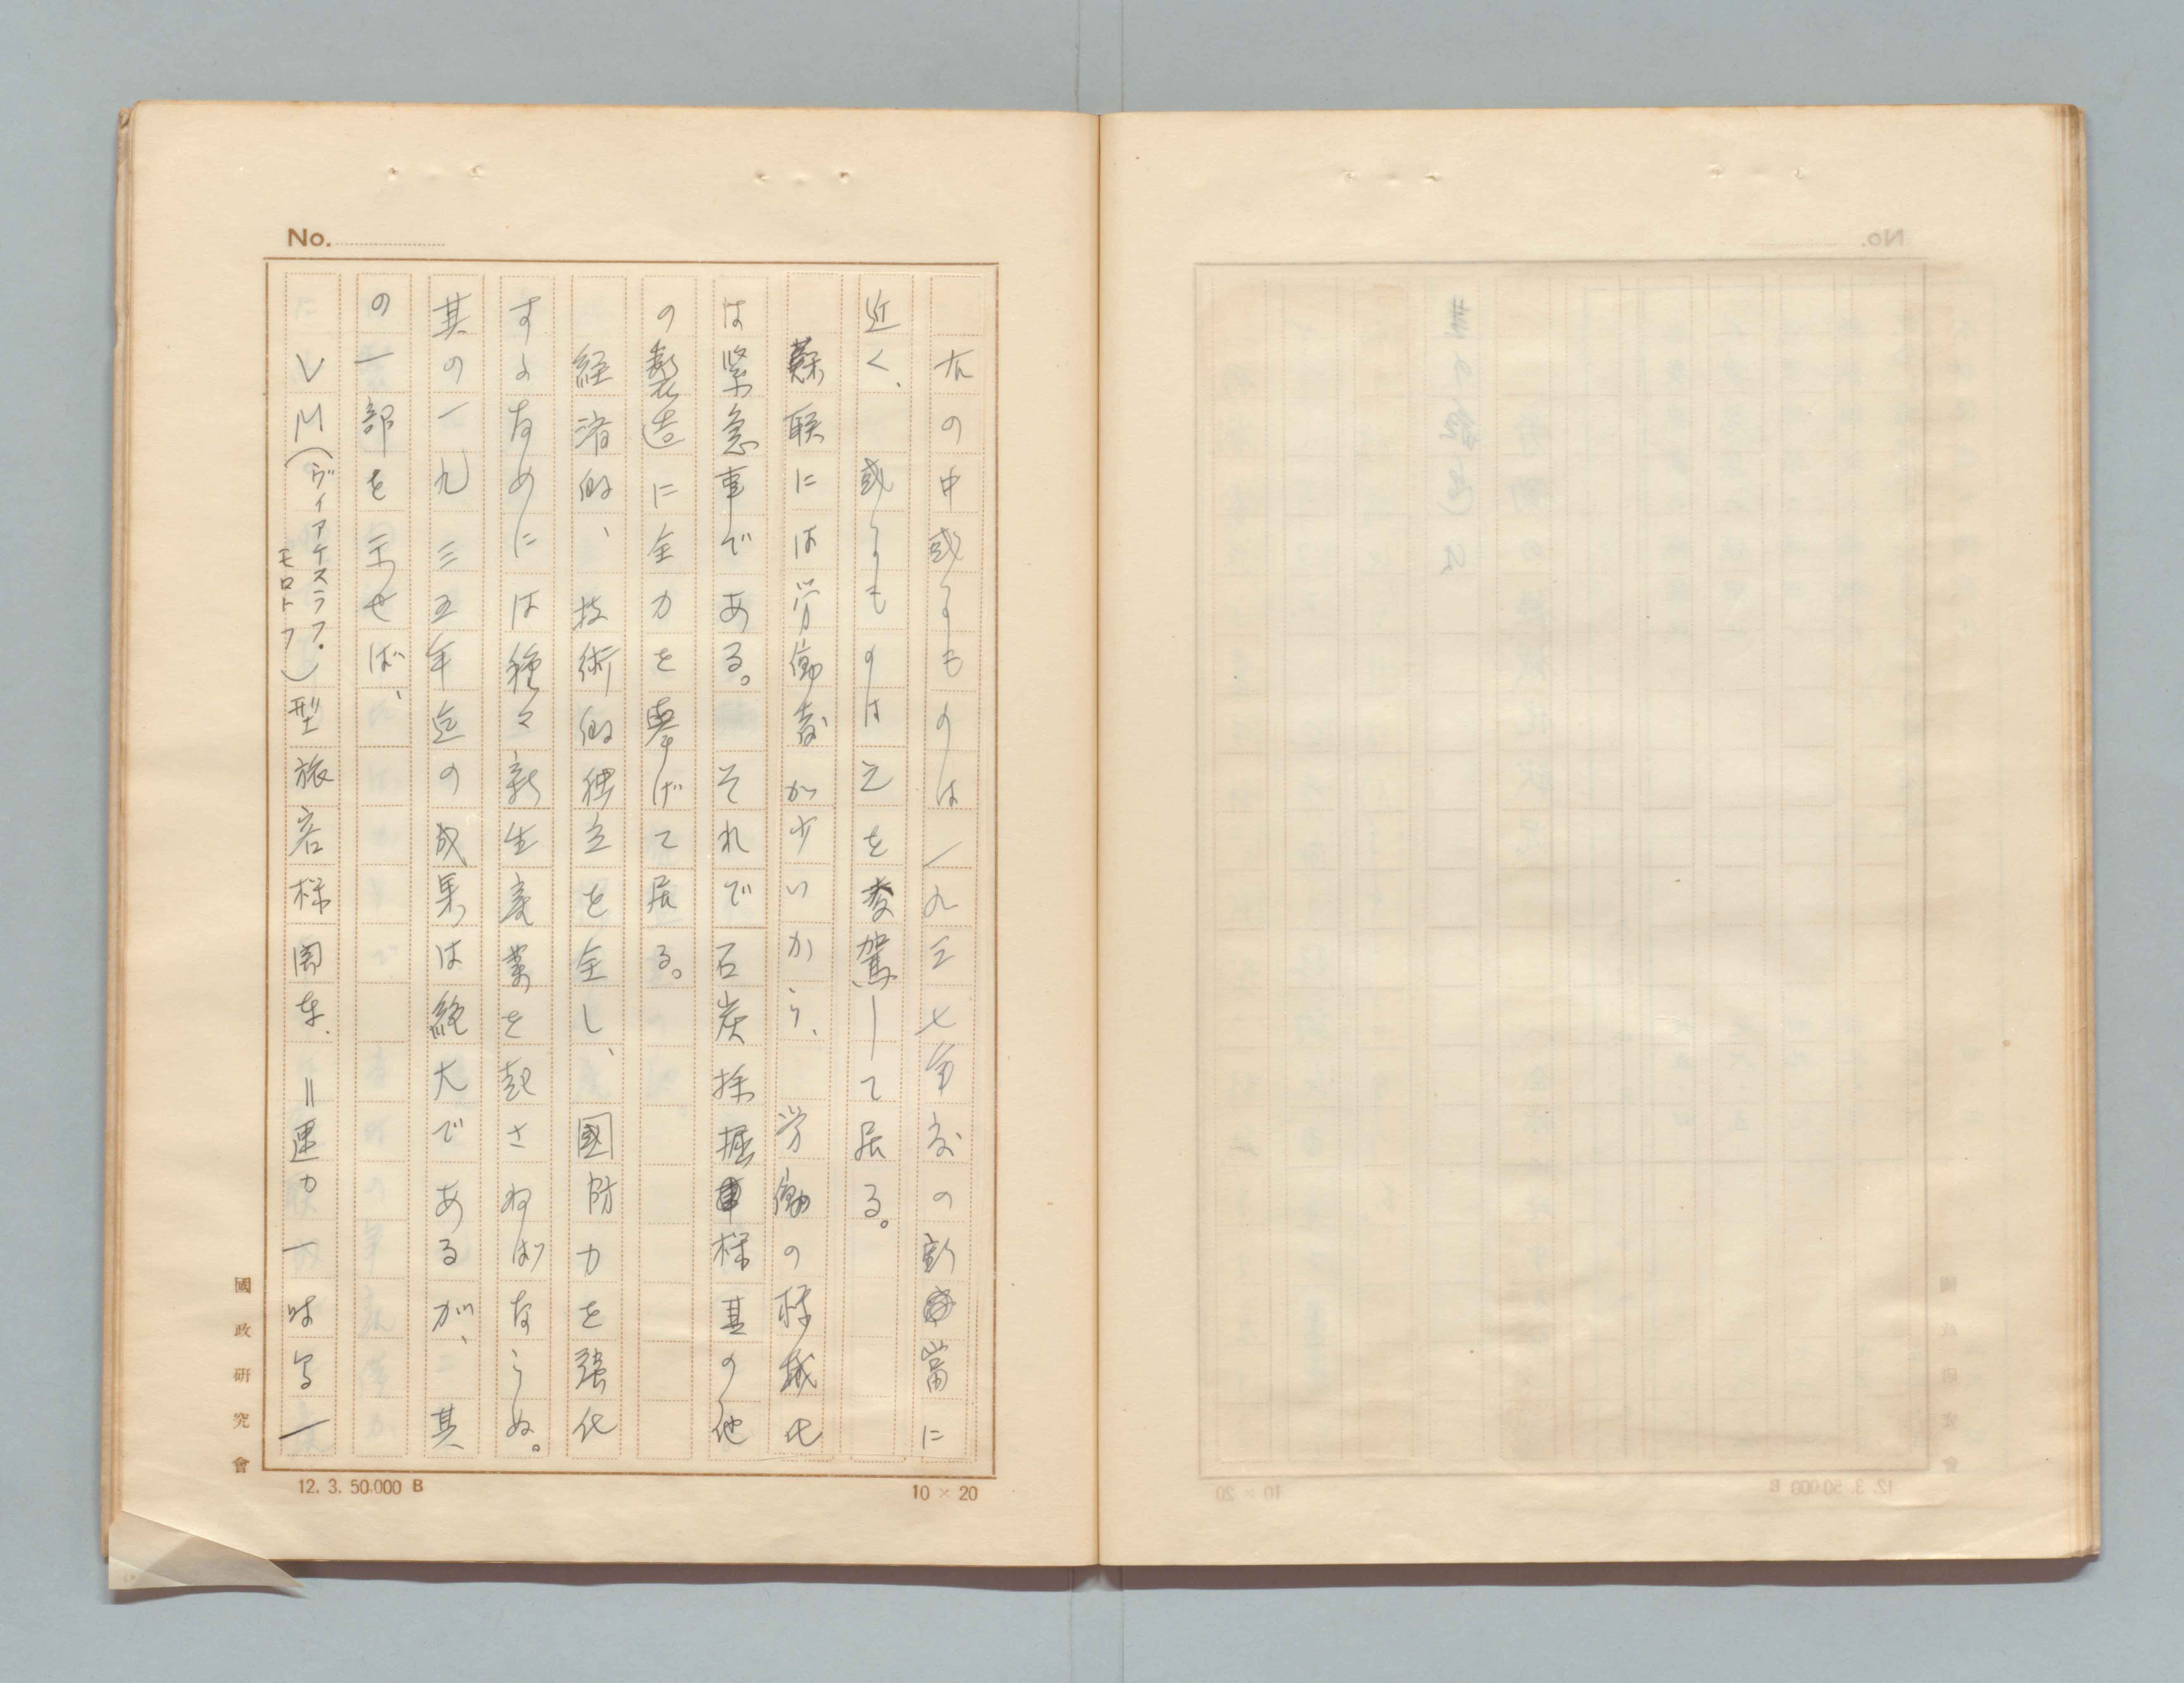 No.
右の中或るものは一九三七年度の割當に
近く、或るものは之を凌駕して居る。
蘇联には労働者が少いから、労働の機械化
は緊急事である。それで石炭採掘機其の他
の製造に全力を挙げて居る。
経済的、技術的独立を全し、國防力を強化
するためには種々新生産業を起さねばならぬ。
其の一九三五年迄の成果は絶大であるが、其
の一部を示せば、
VM(ヴィアケスラフ。モロトフ)型旅客機関車.=速力一時间一
國政研究會
12. 3. 50.000 B
10 × 20